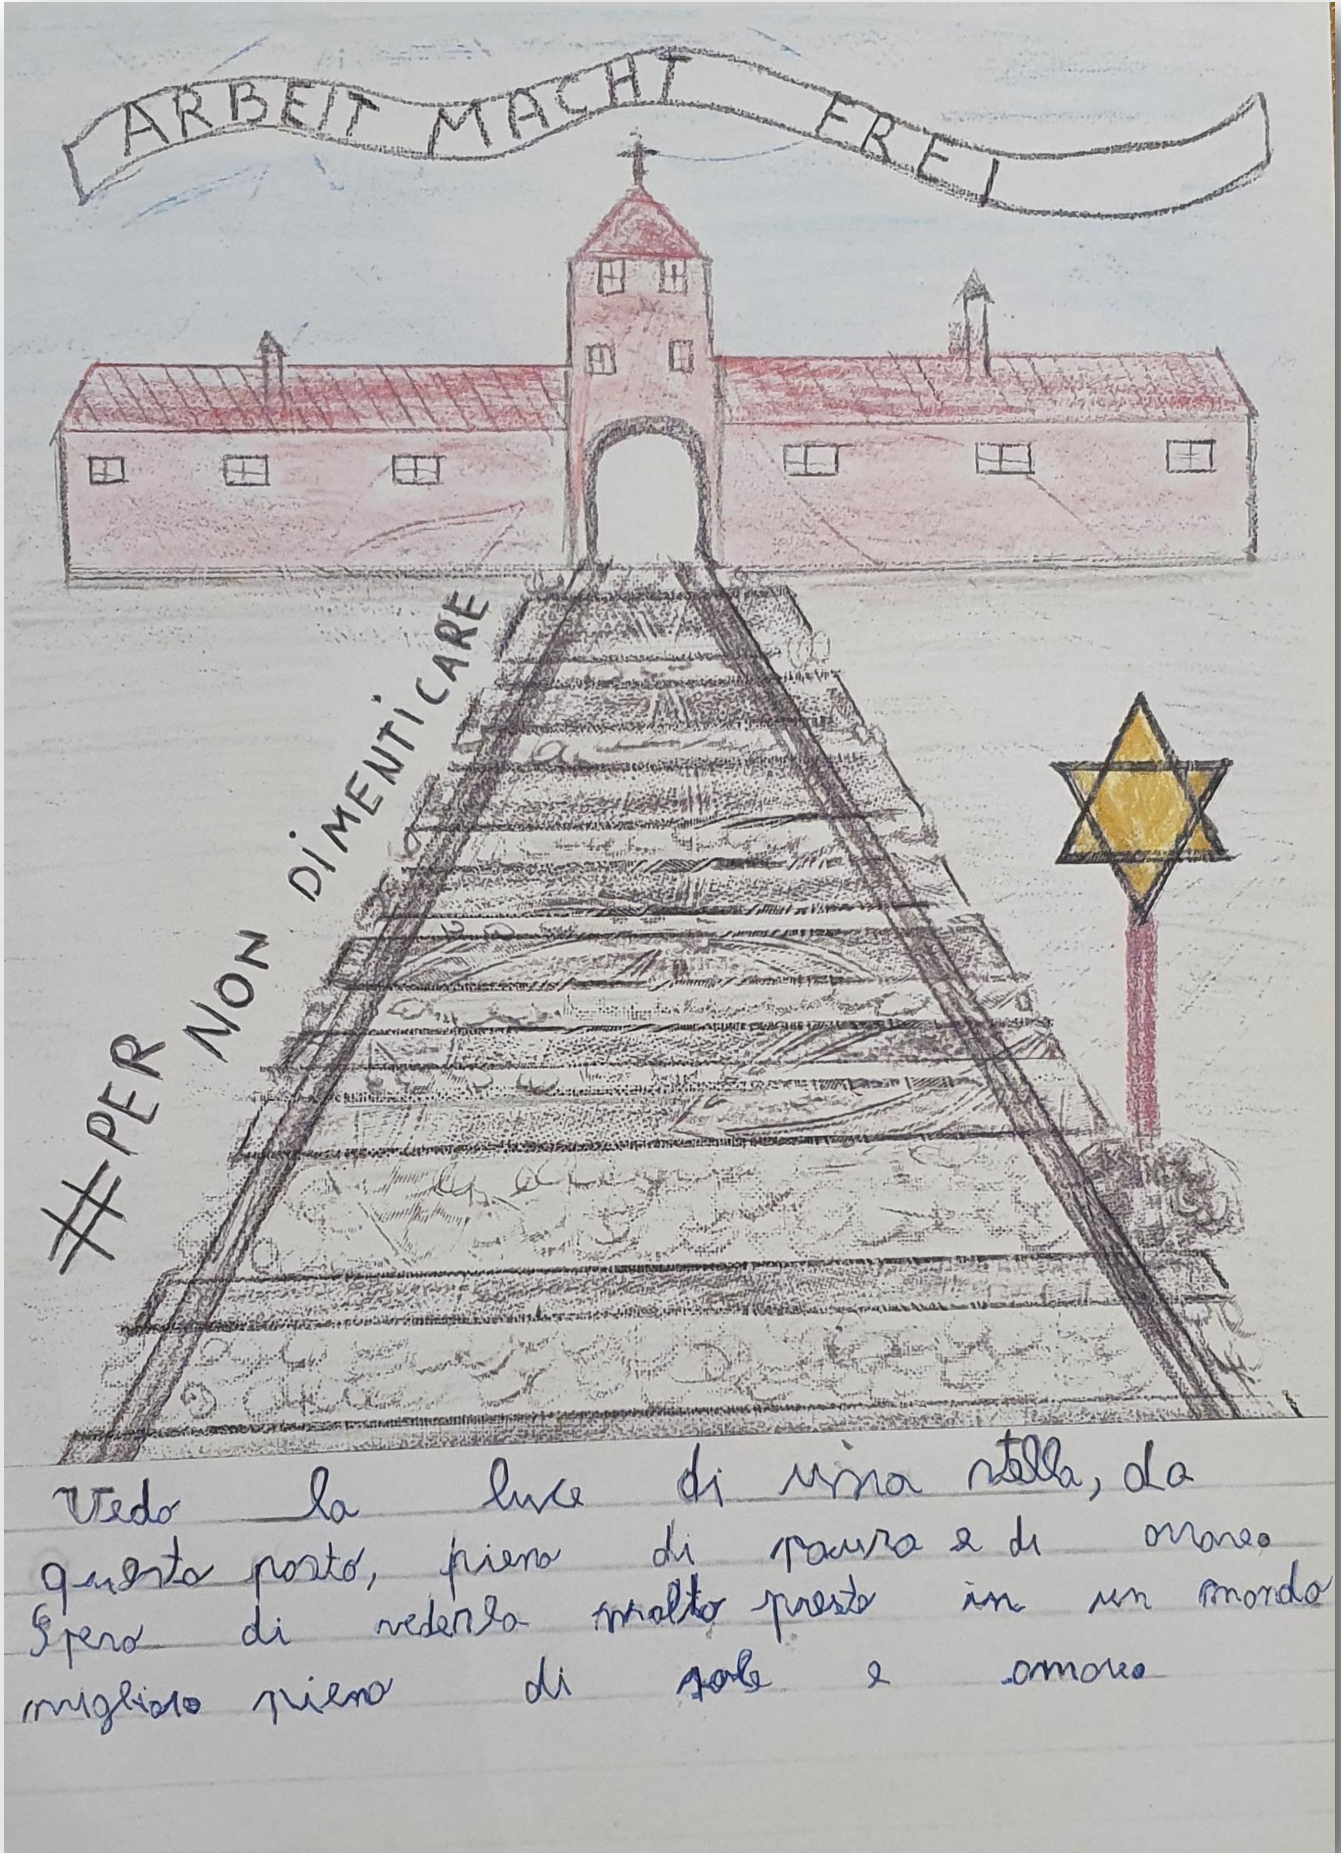 ARBEIT MACHT FREI
#PER NON DIMENTICARE
Vedo la luce di una stella, da
questo posto, pieno di paura e di
Spero di vederla molto presto in un mondo
migliore pieno di sole e amore